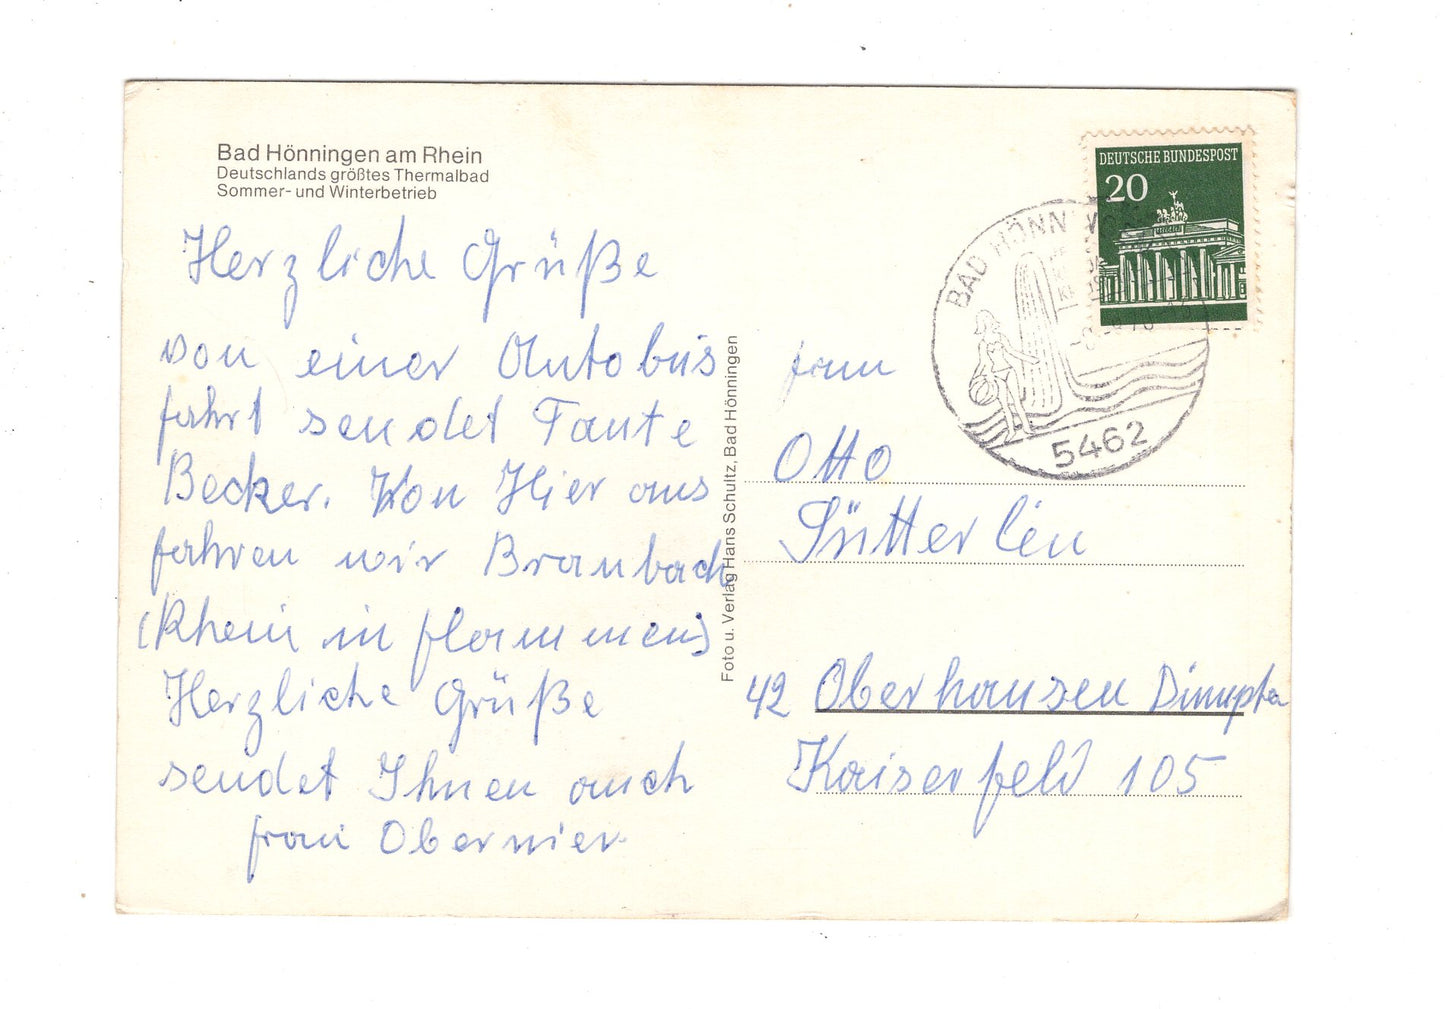 Bad Hönningen am Rhein
Deutschlands größtes Thermalbad
Sommer- und Winterbetrieb
Herzliche Grüße
von einer Autobus
fahrt sendet Tante
Becker. Von Hier aus
fahren wir Braubach
(Rhein in flammen)
Herzliche Grüße
sendet Ihnen auch
frau Obernier
Foto u. Verlag Hans Schultz, Bad Hönningen
DEUTSCHE BUNDESPOST
20
BAD HÖNN
5462
frau
Otto
Sütterlin
42 Oberhausen
Kaiserfeld 105